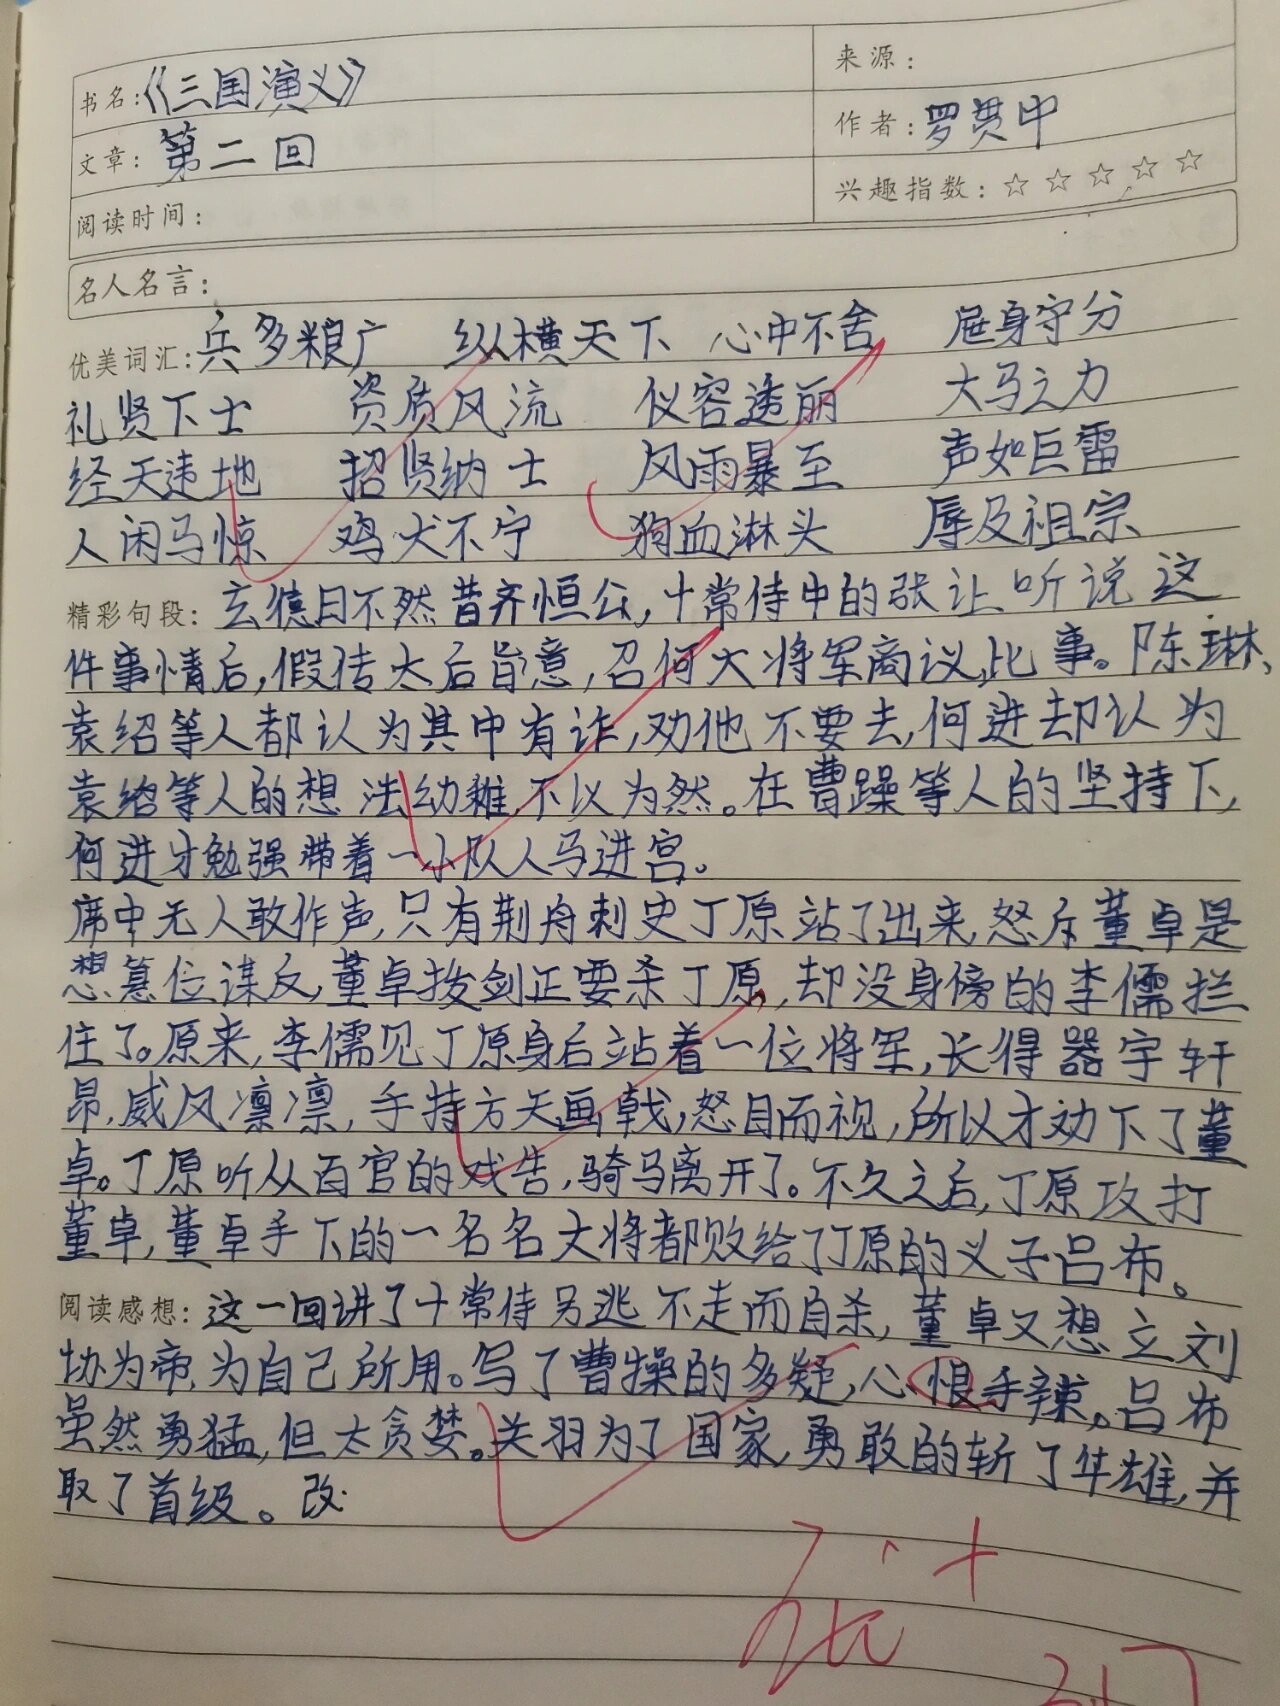 书名:《三国演义》
来源:
文章:第二回
作者:罗贯中
阅读时间:
兴趣指数:☆☆☆☆☆
名人名言:
优美词汇:兵多粮广 纵横天下 心中不舍 屈身守分
礼贤下士 资质风流 仪容透丽 大马之力
经天违地 招贤纳士 风雨暴至 声如巨雷
人闲马惊 鸡犬不宁 狗血淋头 辱及祖宗
精彩句段:玄德曰不然昔齐恒公,十常侍中的张让听说这
件事情后,假传太后旨意,召何大将军商议比事。陈琳、
袁绍等人都认为其中有诈,劝他不要去,何进却认为
袁绍等人的想法幼稚,不以为然。在曹躁等人的坚持下,
何进才勉强带着一小队人马进宫。
席中无人敢作声,只有荆舟刺史丁原站了出来,怒斥董卓是
想篡位谋反,董卓拨剑正要杀丁原,却没身傍的李儒拦
住了。原来,李儒见丁原身后站着一位将军,长得器宇轩
昂,威风凛凛,手持方天画戟,怒目而视,所以才劝下了董
卓。丁原听从百官的戏告,骑马离开了。不久之后,丁原攻打
董卓,董卓手下的一名名大将都败给了丁原的义子吕布。
阅读感想:这一回讲了十常侍另逃不走而自杀,董卓又想立刘
协为帝,为自己所用。写了曹操的多疑,心恨手辣。吕布
虽然勇猛,但太贪婪。关羽为了国家,勇敢的斩了华雄,并
取了首级。改
优+